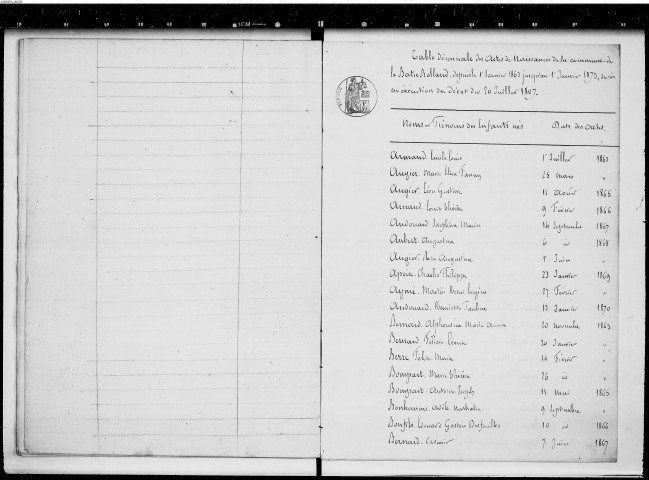 Table Décennale des Actes de Naissances de la commune de
la Batie Rolland, depuis le 1er Janvier 1863 jusqu'au 1er Janvier 1873, dressée
en exécution du Décret du 20 Juillet 1807.
Noms et Prénoms des Enfants nés Date des Actes.
Armand Emile Louis 1er Juillet 1863
Augier Marie Fanny 25 mars "
Augier Léon Gustave 11 Août 1865
Arnaud Louis 9 Février 1866
Audouard Joséphine Marie 14 Septembre 1867
Aubert Augustine 6 id 1868
Augier Augustine 1er Juin "
Charles Philippe 23 Janvier 1869
Aymé 27 Février "
Audouard Henriette Pauline 13 Janvier 1870
Bernard Alphonsine Marie 20 novembre 1863
Bernard Félicie 20 Janvier "
Berre Marie 24 Février "
Bompart Marie 26 id "
Bompart Antoine Joseph 11 mai 1865
Bonhomme Adèle Nathalie 9 Septembre "
Bonfils Gaston 10 id 1866
Bernard Casimir 7 Juin 1867